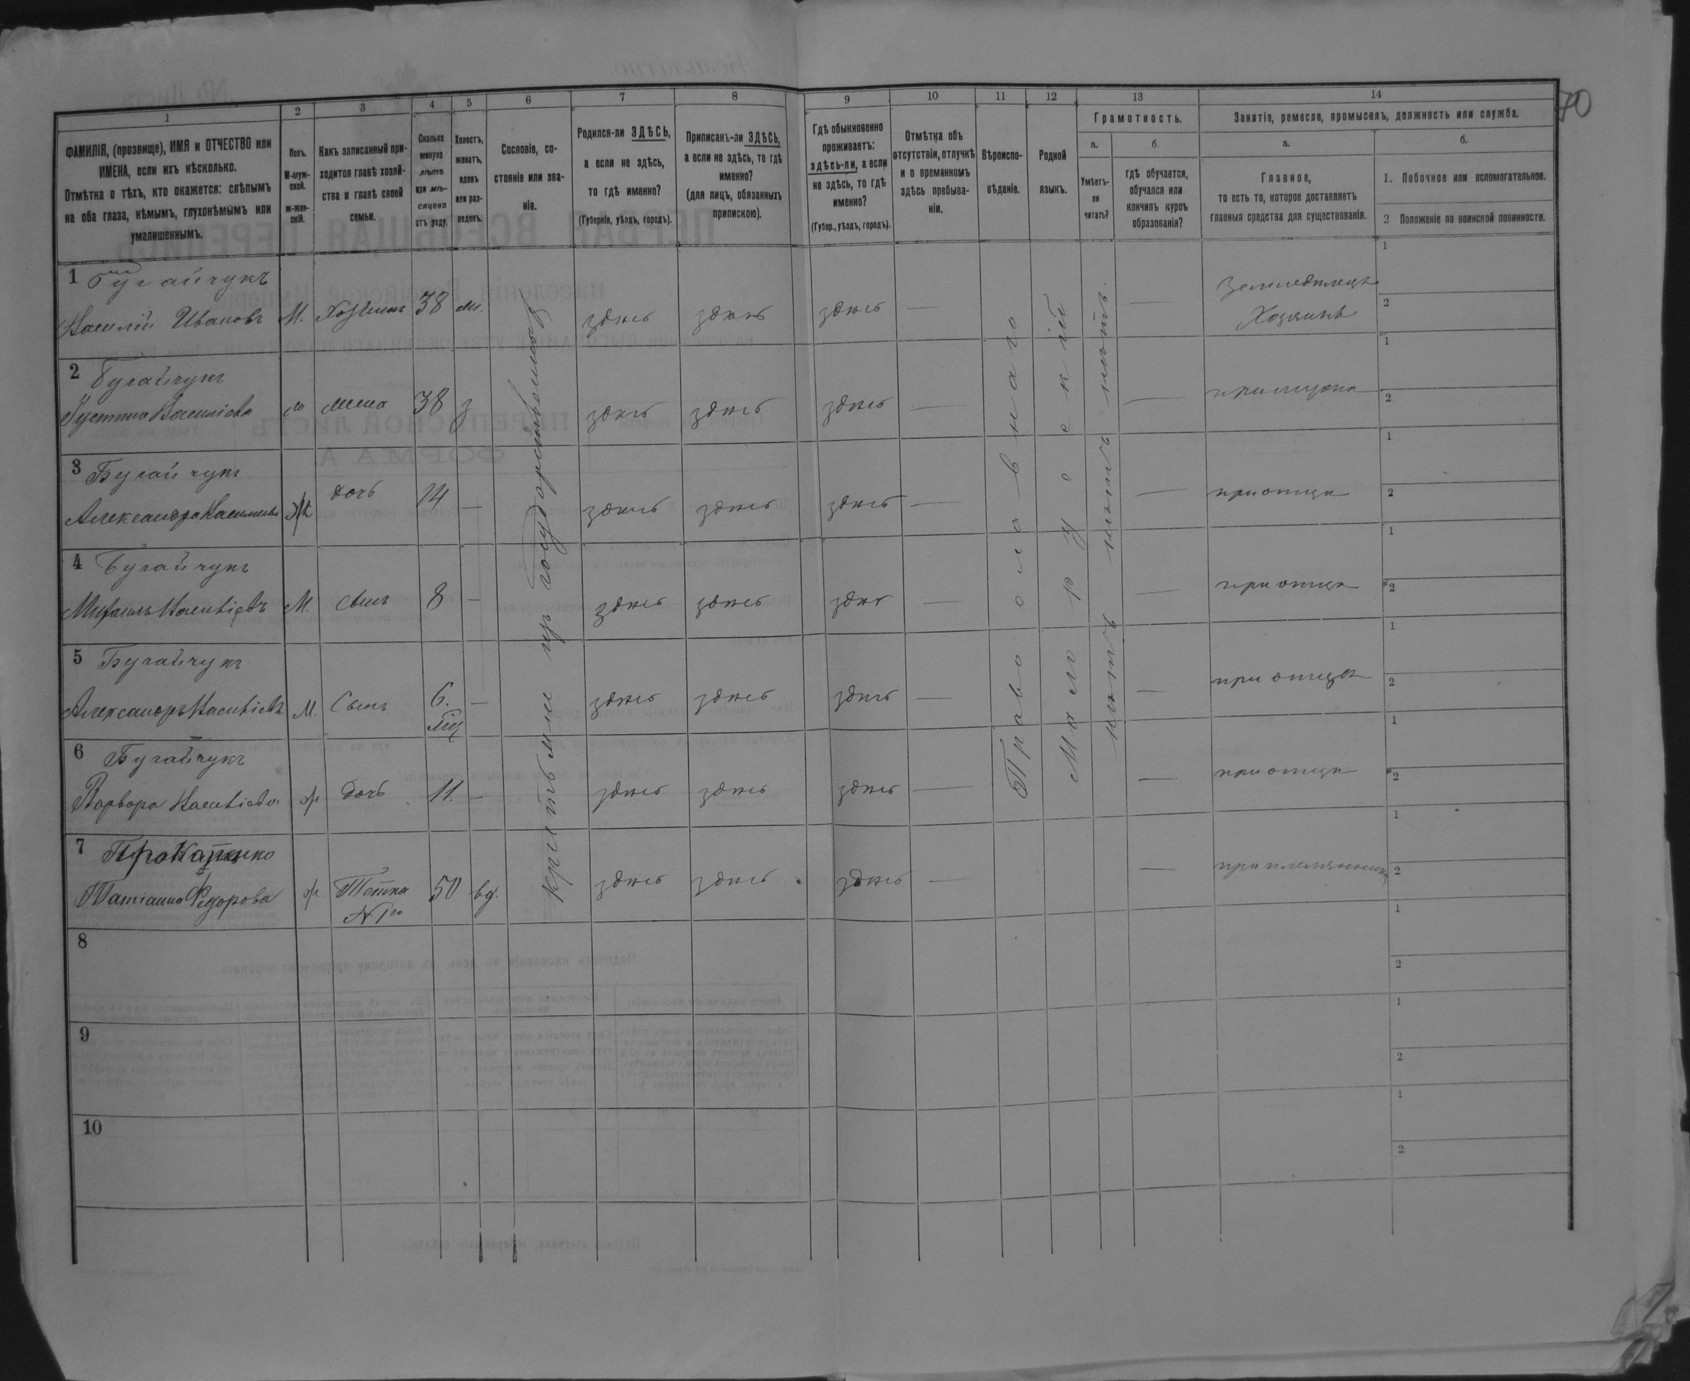 70
1 2 3 4 5 6 7 8 9 10 11 12 13 14
ФАМИЛІЯ, (прозвище), ИМЯ и ОТЧЕСТВО или
ИМЕНА, если ихъ нѣсколько.
Отмѣтка о тѣхъ, кто окажется: слѣпымъ
на оба глаза, нѣмымъ, глухонѣмымъ или
умалишеннымъ.
Полъ.
М-муж-
ской.
ж-жен-
скій.
Какъ записанный при-
ходится главѣ хозяй-
ства и главѣ своей
семьи.
Сколько
минуло
лѣтъ
или мѣ-
сяцевъ
отъ роду.
Холостъ,
женатъ,
вдовъ
или раз-
веденъ.
Сословіе, со-
стояніе или зва-
ніе.
Родился-ли ЗДѢСЬ,
а если не здѣсь,
то гдѣ именно?
(Губернія, уѣздъ, городъ).
Приписанъ-ли ЗДѢСЬ,
а если не здѣсь, то гдѣ
именно?
(для лицъ, обязанныхъ
припискою).
Гдѣ обыкновенно
проживаетъ:
здѣсь-ли, а если
не здѣсь, то гдѣ
именно?
(Губер., уѣздъ, городъ).
Отмѣтка объ
отсутствіи, отлучкѣ
и о временномъ
здѣсь пребыва-
ніи.
Вѣроиспо-
вѣданіе.
Родной
языкъ.
Грамотность.
а.
Умѣетъ-
ли
читать?
б.
гдѣ обучается,
обучался или
кончилъ курсъ
образованія?
Занятіе, ремесло, промыселъ, должность или служба.
а.
Главное,
то есть то, которое доставляетъ
главныя средства для существованія.
б.
1. Побочное или вспомогательное.
2 Положеніе по воинской повинности.
1 Бугайчукъ
Василій Ивановъ М. Хозяинъ 38 ж. здѣсь здѣсь здѣсь — — Земледѣлецъ
Хозяинъ
2 Бугайчукъ
Устина Василіева жена 38 з здѣсь здѣсь здѣсь — — при мужѣ
3 Бугайчукъ
Александра Василіева Ж дочь 14 — здѣсь здѣсь здѣсь — — при отцѣ
4 Бугайчукъ
Михаилъ Василіевъ М. сынъ 8 — здѣсь здѣсь здѣсь — — при отцѣ
5 Бугайчукъ
Александръ Василіевъ М. Сынъ 6. — здѣсь здѣсь здѣсь — — при отцѣ
6 Бугайчукъ
Варвара Василіева ж Дочь 11. — здѣсь здѣсь здѣсь — — при отцѣ
7
Татіана Федорова ж Тётка 50 вд. здѣсь здѣсь здѣсь — — при племянникѣ
N 1го
Православнаго
Малорускій
нѣтъ нѣтъ нѣтъ.
8
9
10